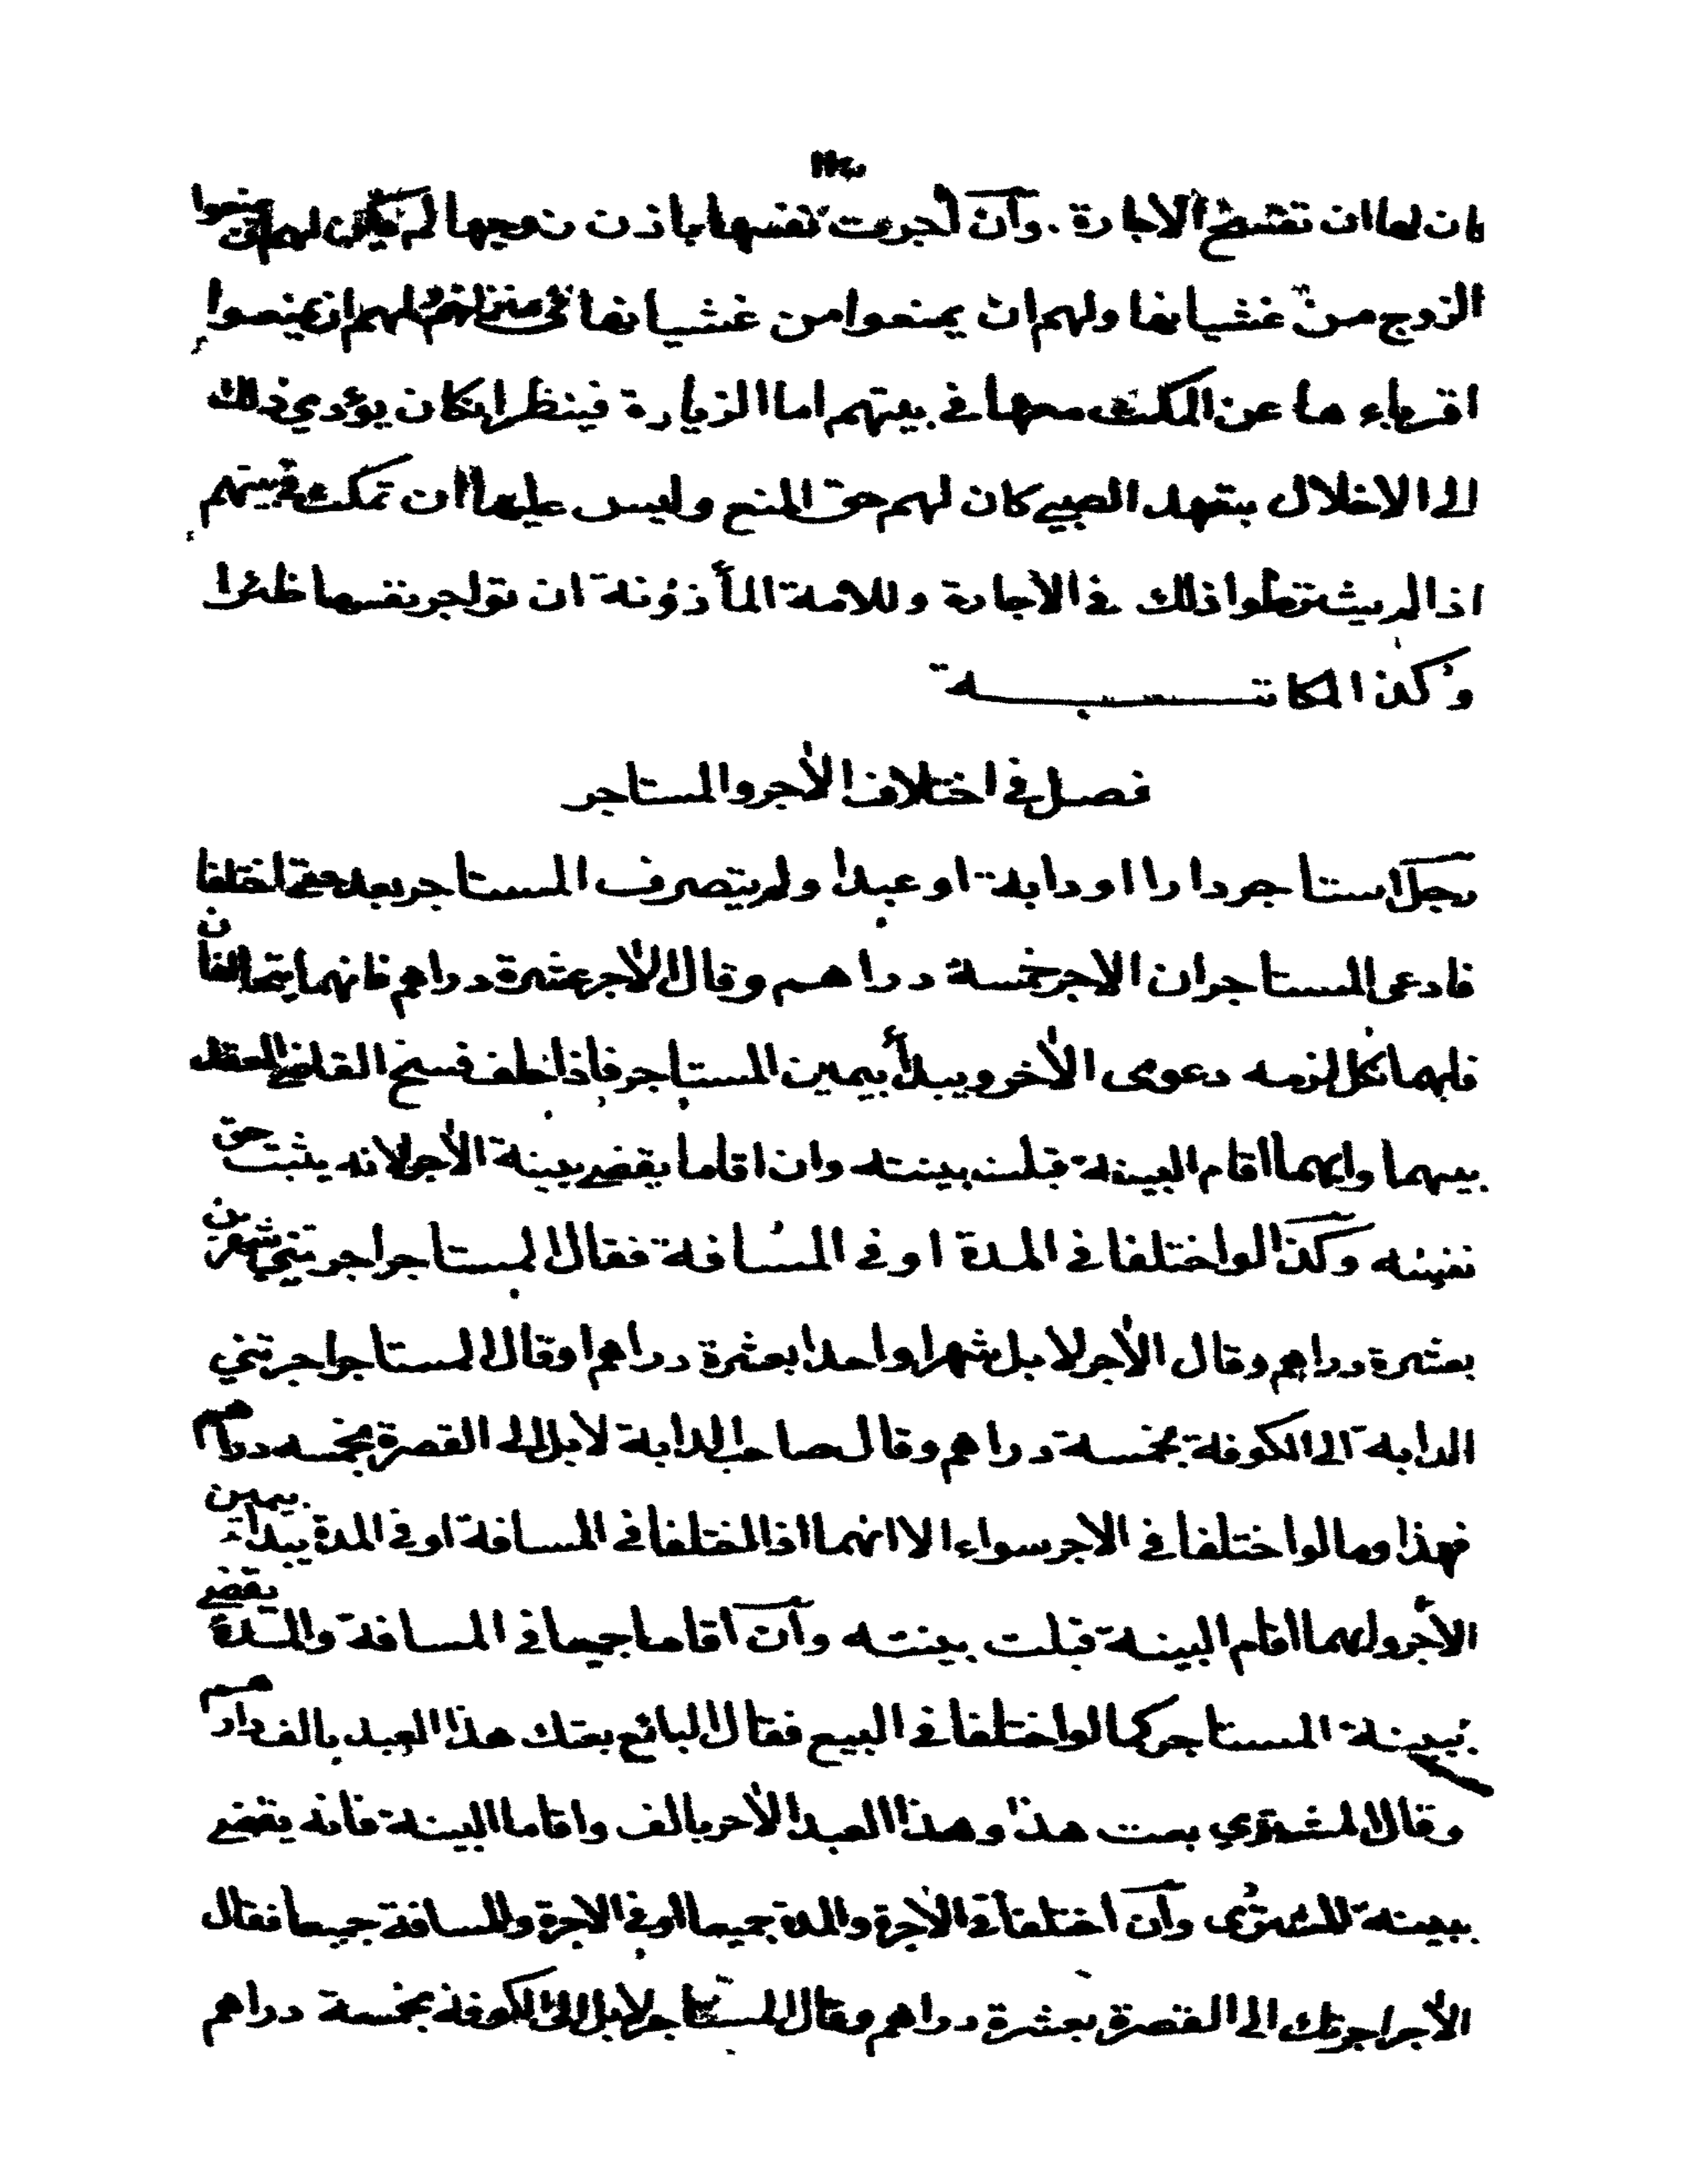 بان لها ان تفسخ الاجارة . وان اجرت نفسها باذن زوجها لم يكن لهم ان يمنعوا
الزوج من غشيانها ولهم ان يمنعوا من غشيانها في منزلهم ولهم ان يمنعوا
اقرباء ها عن المكث معها في بيتهم اما الزيارة فينظر ان كان يؤدي ذلك
الى الاخلال بتعهد الصبي كان لهم حق المنع وليس عليها ان تمكث في بيتهم
اذا لم يشترطوا ذلك في الاجارة وللامة المأذونة ان تؤاجر نفسها ظئرا
وكذا المكاتبة
فصل في اختلاف الآجر والمستاجر
رجل استاجر دارا او دابة او عبدا ولم يتصرف المستاجر بعد حتى اختلفا
فادعى المستاجر ان الاجر خمسة دراهم وقال الآجر عشرة دراهم فانهما يتحالفان
فايهما نكل لزمه دعوى الآخر ويبدأ بيمين المستاجر فاذا حلف فسخ القاضي العقد
بينهما وايهما اقام البينة قبلت بينته وان اقاما يقضى ببينة الآجر لانه يثبت حق
نفسه وكذا لو اختلفا في المدة او في المسافة فقال المستاجر اجرتني شهرين
بعشرة دراهم وقال الآجر لا بل شهرا واحدا بعشرة دراهم او قال المستاجر اجرتني
الدابة الى الكوفة بخمسة دراهم وقال صاحب الدابة لا بل الى القصرة بخمسه دراهم
فهذا وما لو اختلفا في الاجر سواء الا انهما اذا اختلفا في المسافة او في المدة يبدأ بيمين
الآجر وايهما اقام البينة قبلت بينته وان اقاما جميعا في المسافة والمدة يقضى
ببينة المستاجر كما لو اختلفا في البيع فقال البائع بعتك هذا العبد بالف دراهم
وقال المشتري بعت هذا وهذا العبد الآخر بالف واقاما البينة فانه يقضى
ببينة المشترى وان اختلفا في الاجرة والمدة جميعا او في الاجرة والمسافة جميعا فقال
الآجر اجرتك الى القصرة بعشرة دراهم وقال المستاجر لا بل الى الكوفة بخمسة دراهم